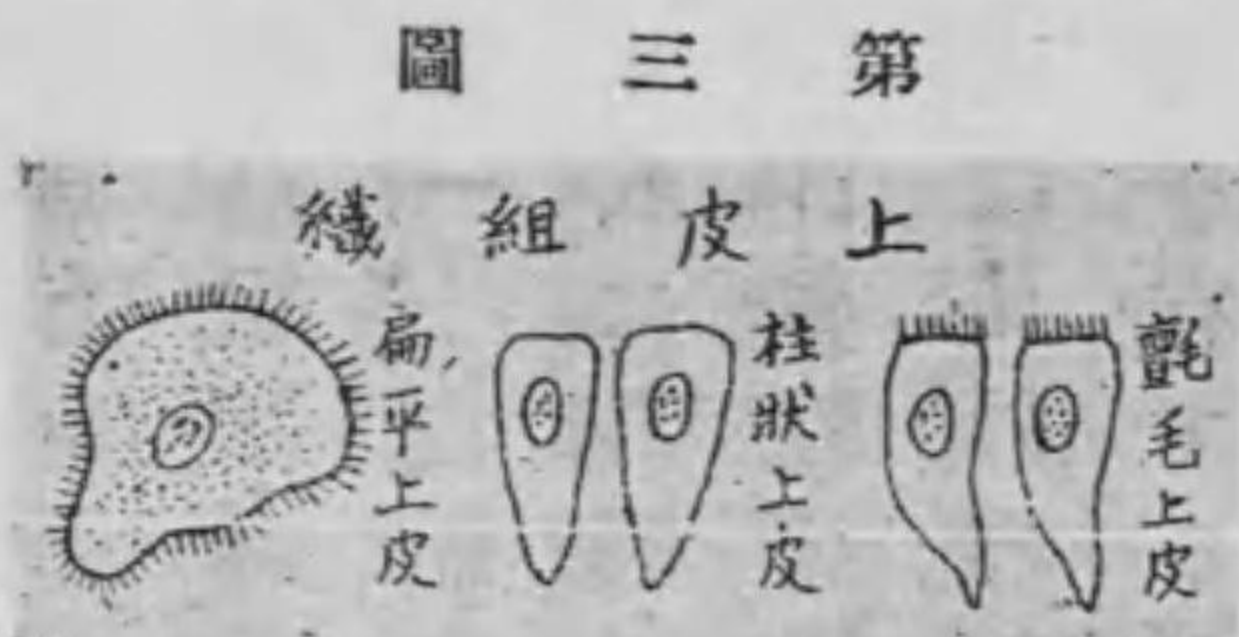 第三圖
上皮組織
氈毛上皮
柱狀上皮
扁平上皮